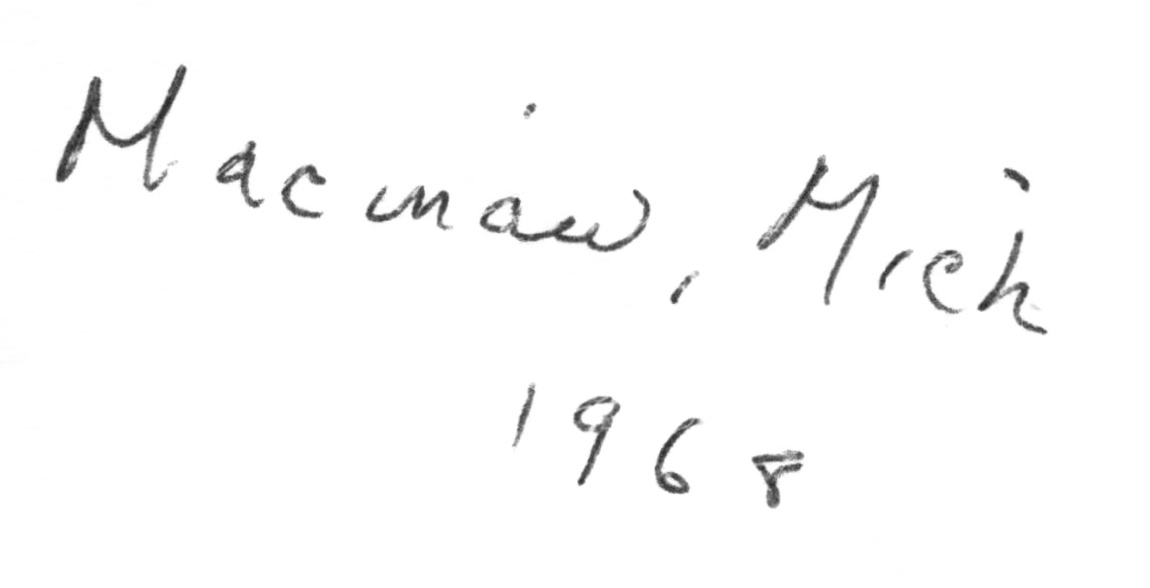 Macinaw, Mich
1968